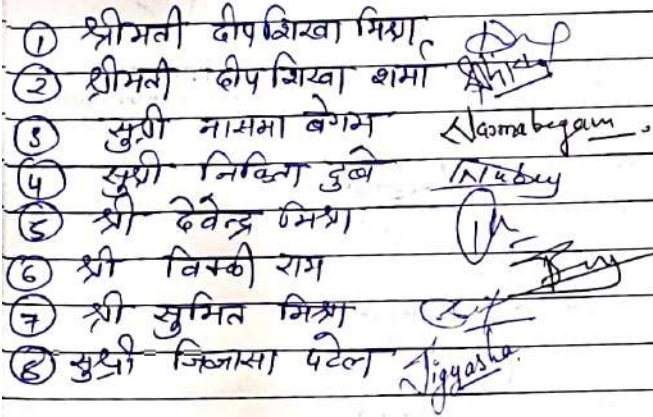 ① श्रीमती दीपशिखा मिश्रा
② श्रीमती दीपशिखा शर्मा
③ सुश्री नासमा बेगम Nasmabegam
④ सुश्री निकिता दुबे
⑤ श्री देवेन्द्र मिश्रा
⑥ श्री विक्की राय
⑦ श्री सुमित मिश्रा
⑧ सुश्री जिज्ञासा पटेल Jigyasha